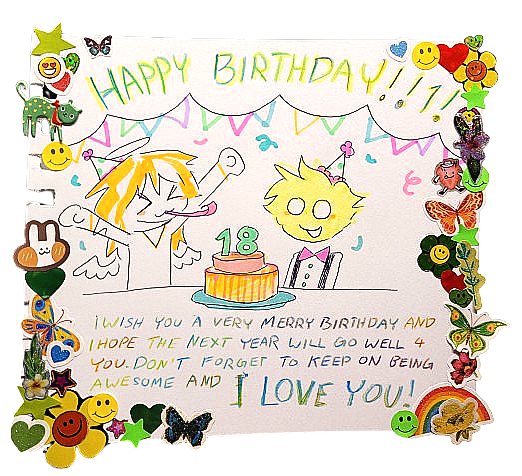 HAPPY BIRTHDAY!!1!
18
I WISH YOU A VERY MERRY BIRTHDAY AND
I HOPE THE NEXT YEAR WILL GO WELL 4
YOU. DON'T FORGET TO KEEP ON BEING
AWESOME AND I LOVE YOU!